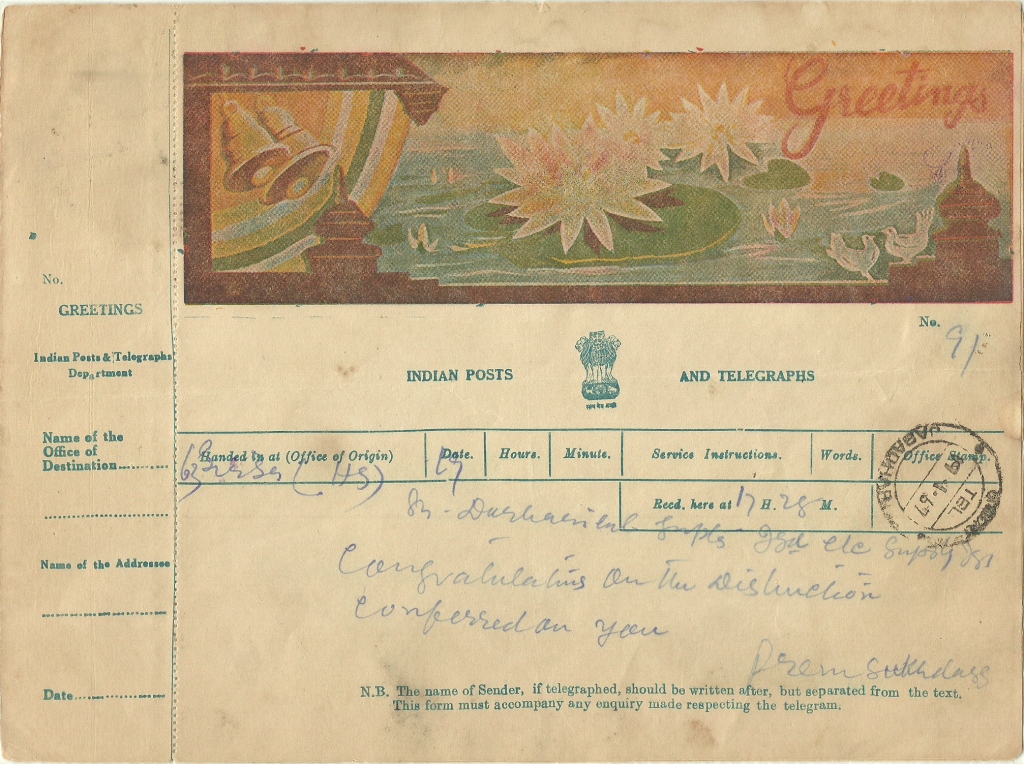 Greetings
No.
GREETINGS
Indian Posts & Telegraphs
Department
Name of the
Office of
Destination
Name of the Addressee
Date
No. 91
INDIAN POSTS AND TELEGRAPHS
सत्यमेव जयते
Handed in at (Office of Origin) Date. Hours. Minute. Service Instructions. Words. Office Stamp.
(HS) 19
Recd. here at 17 H. 28 M.
TEL
Gupta Supply
Congratulations on the Distinction
Conferred on you
Prem Sukhdass
N.B. The name of Sender, if telegraphed, should be written after, but separated from the text.
This form must accompany any enquiry made respecting the telegram.